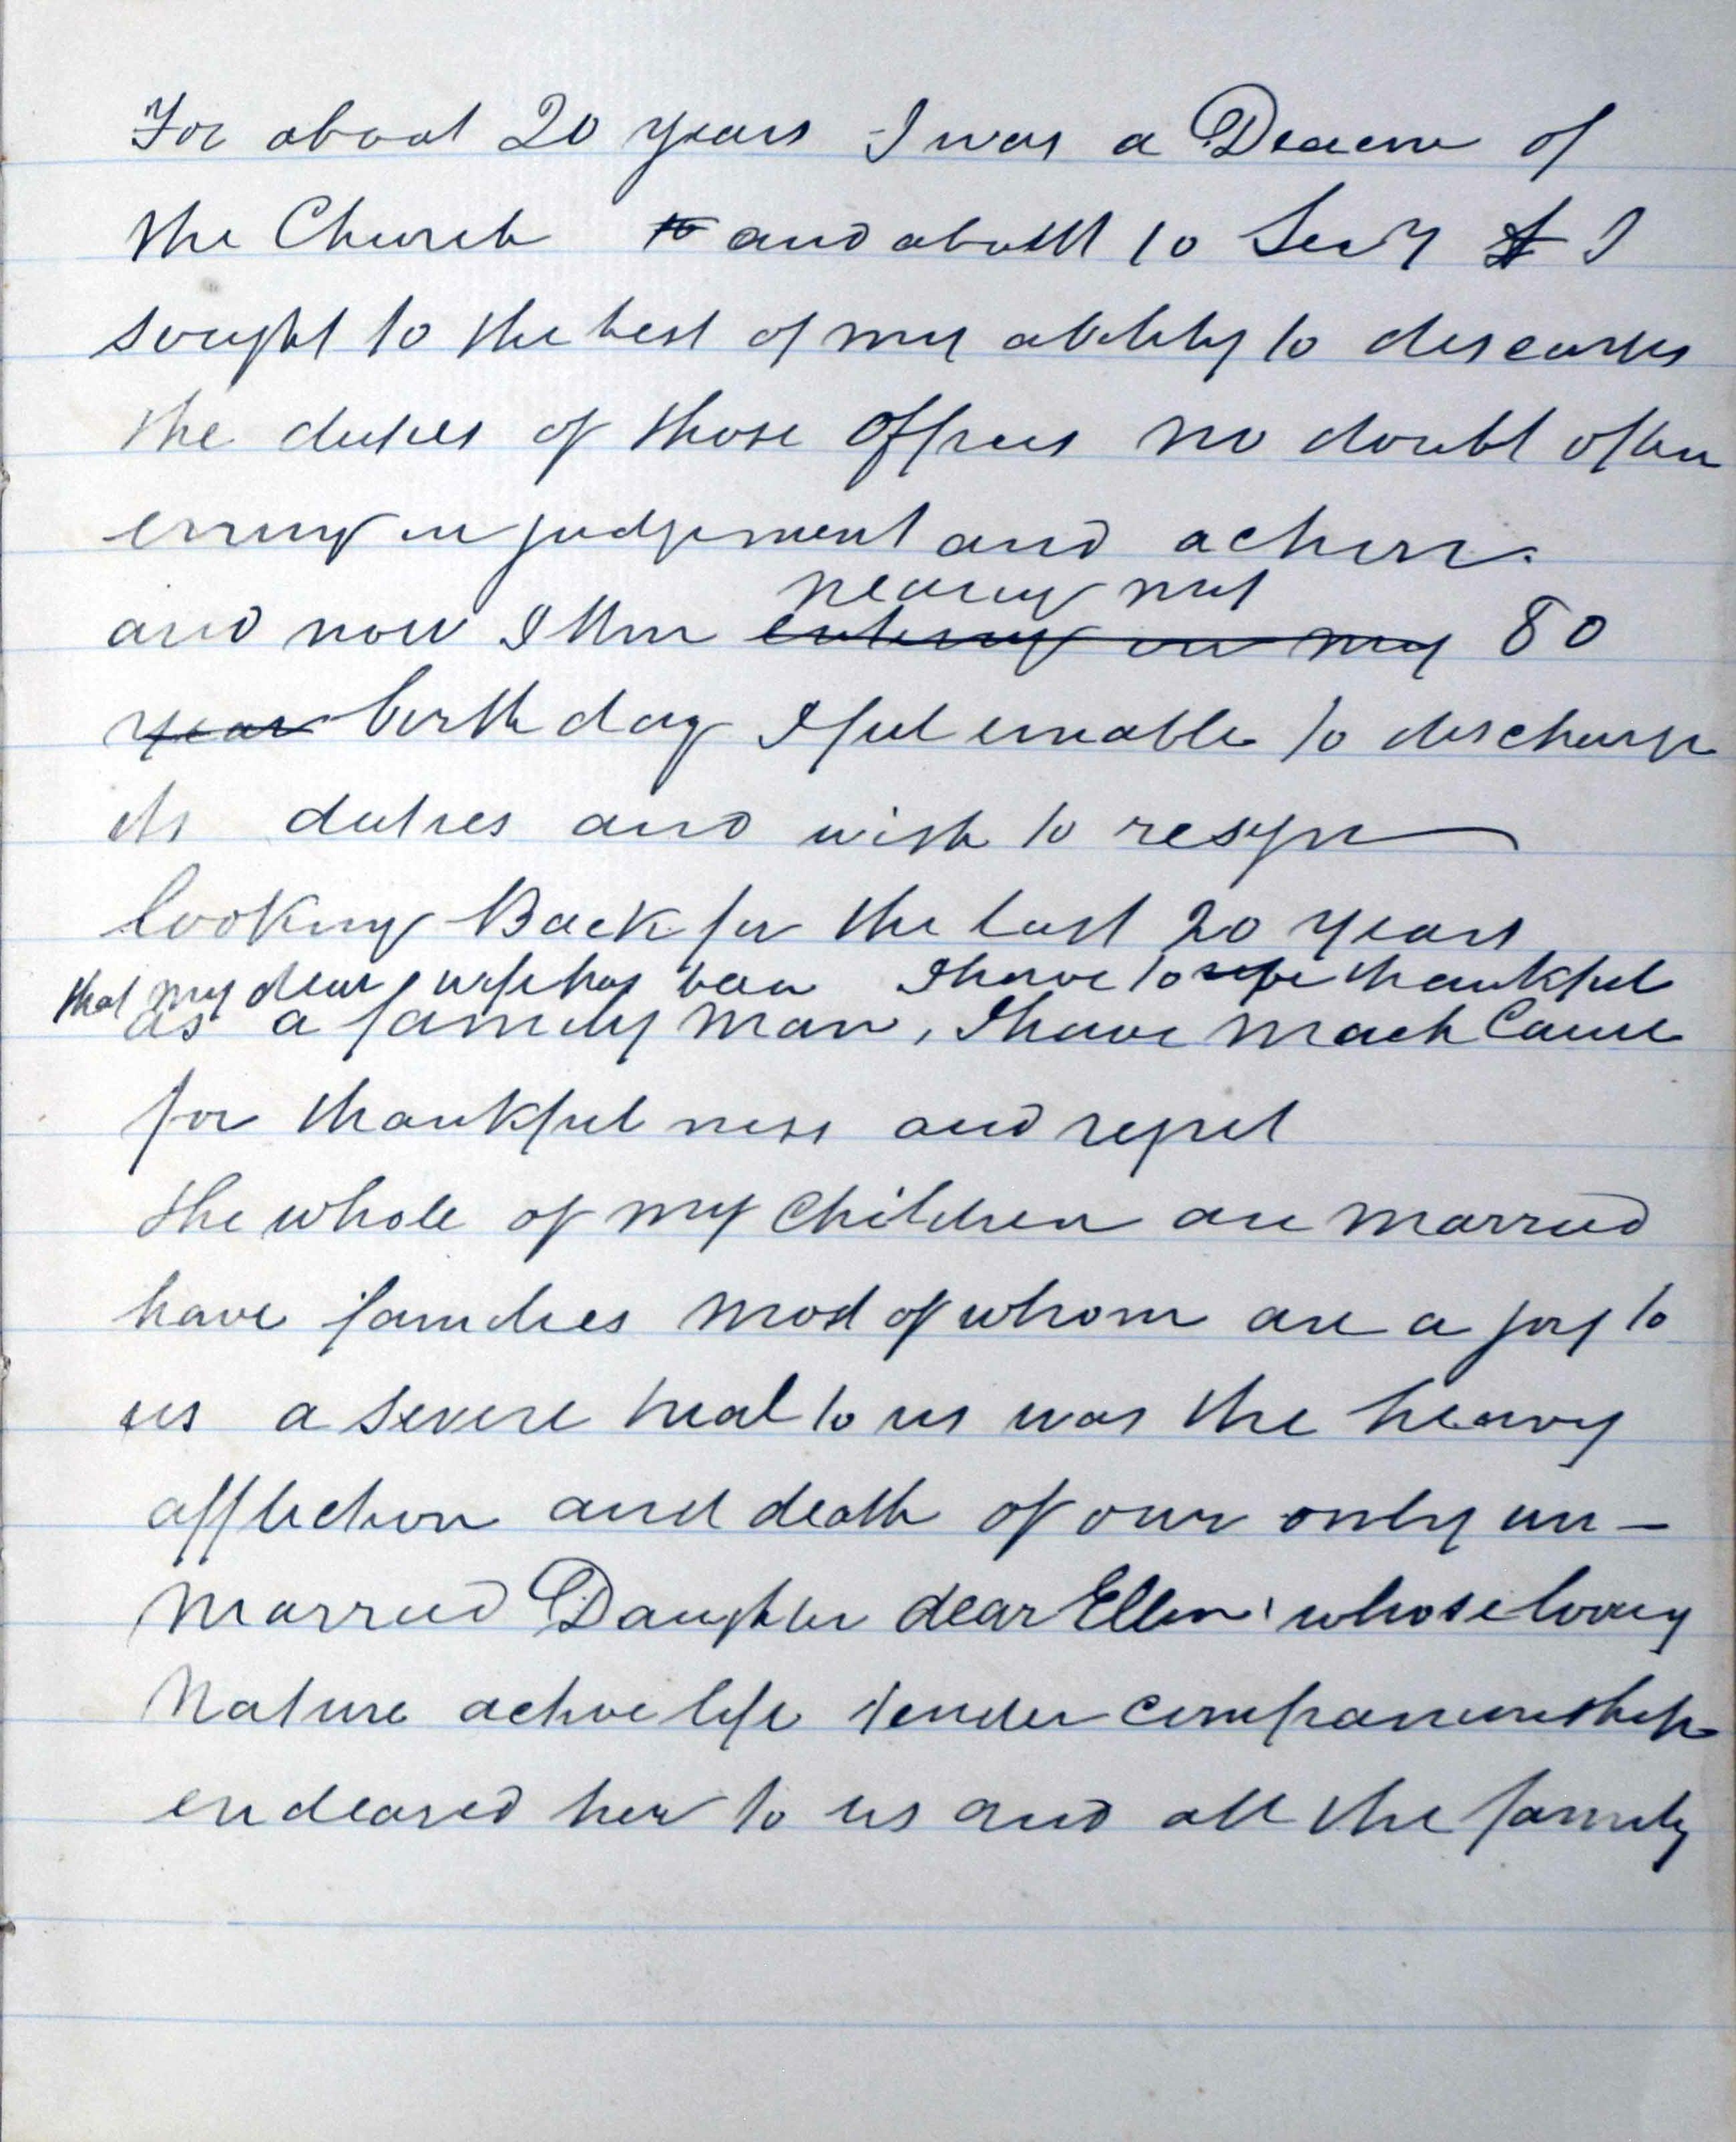 For about 20 years I was a Deacon of
the Church to and about 10 Secy & I
sought to the best of my ability to discarge
the duties of those Offices no doubt often
erring in judgement and action.
nearing my
and now I then entering on my 80
year birth day I feel unable to discharge
its duties and wish to resign
looking Back for the last 20 years
that my dear wife has been I have to be thankful
as a family man, I have much Cause
for thankfulness and regret
the whole of my Children are married
have families most of whom are a joy to
us a severe trial to us was the heavy
affliction and death of our only un-
married Daughter dear Ellen whose loving
Nature active life tender companionship
endeared her to us and all the family